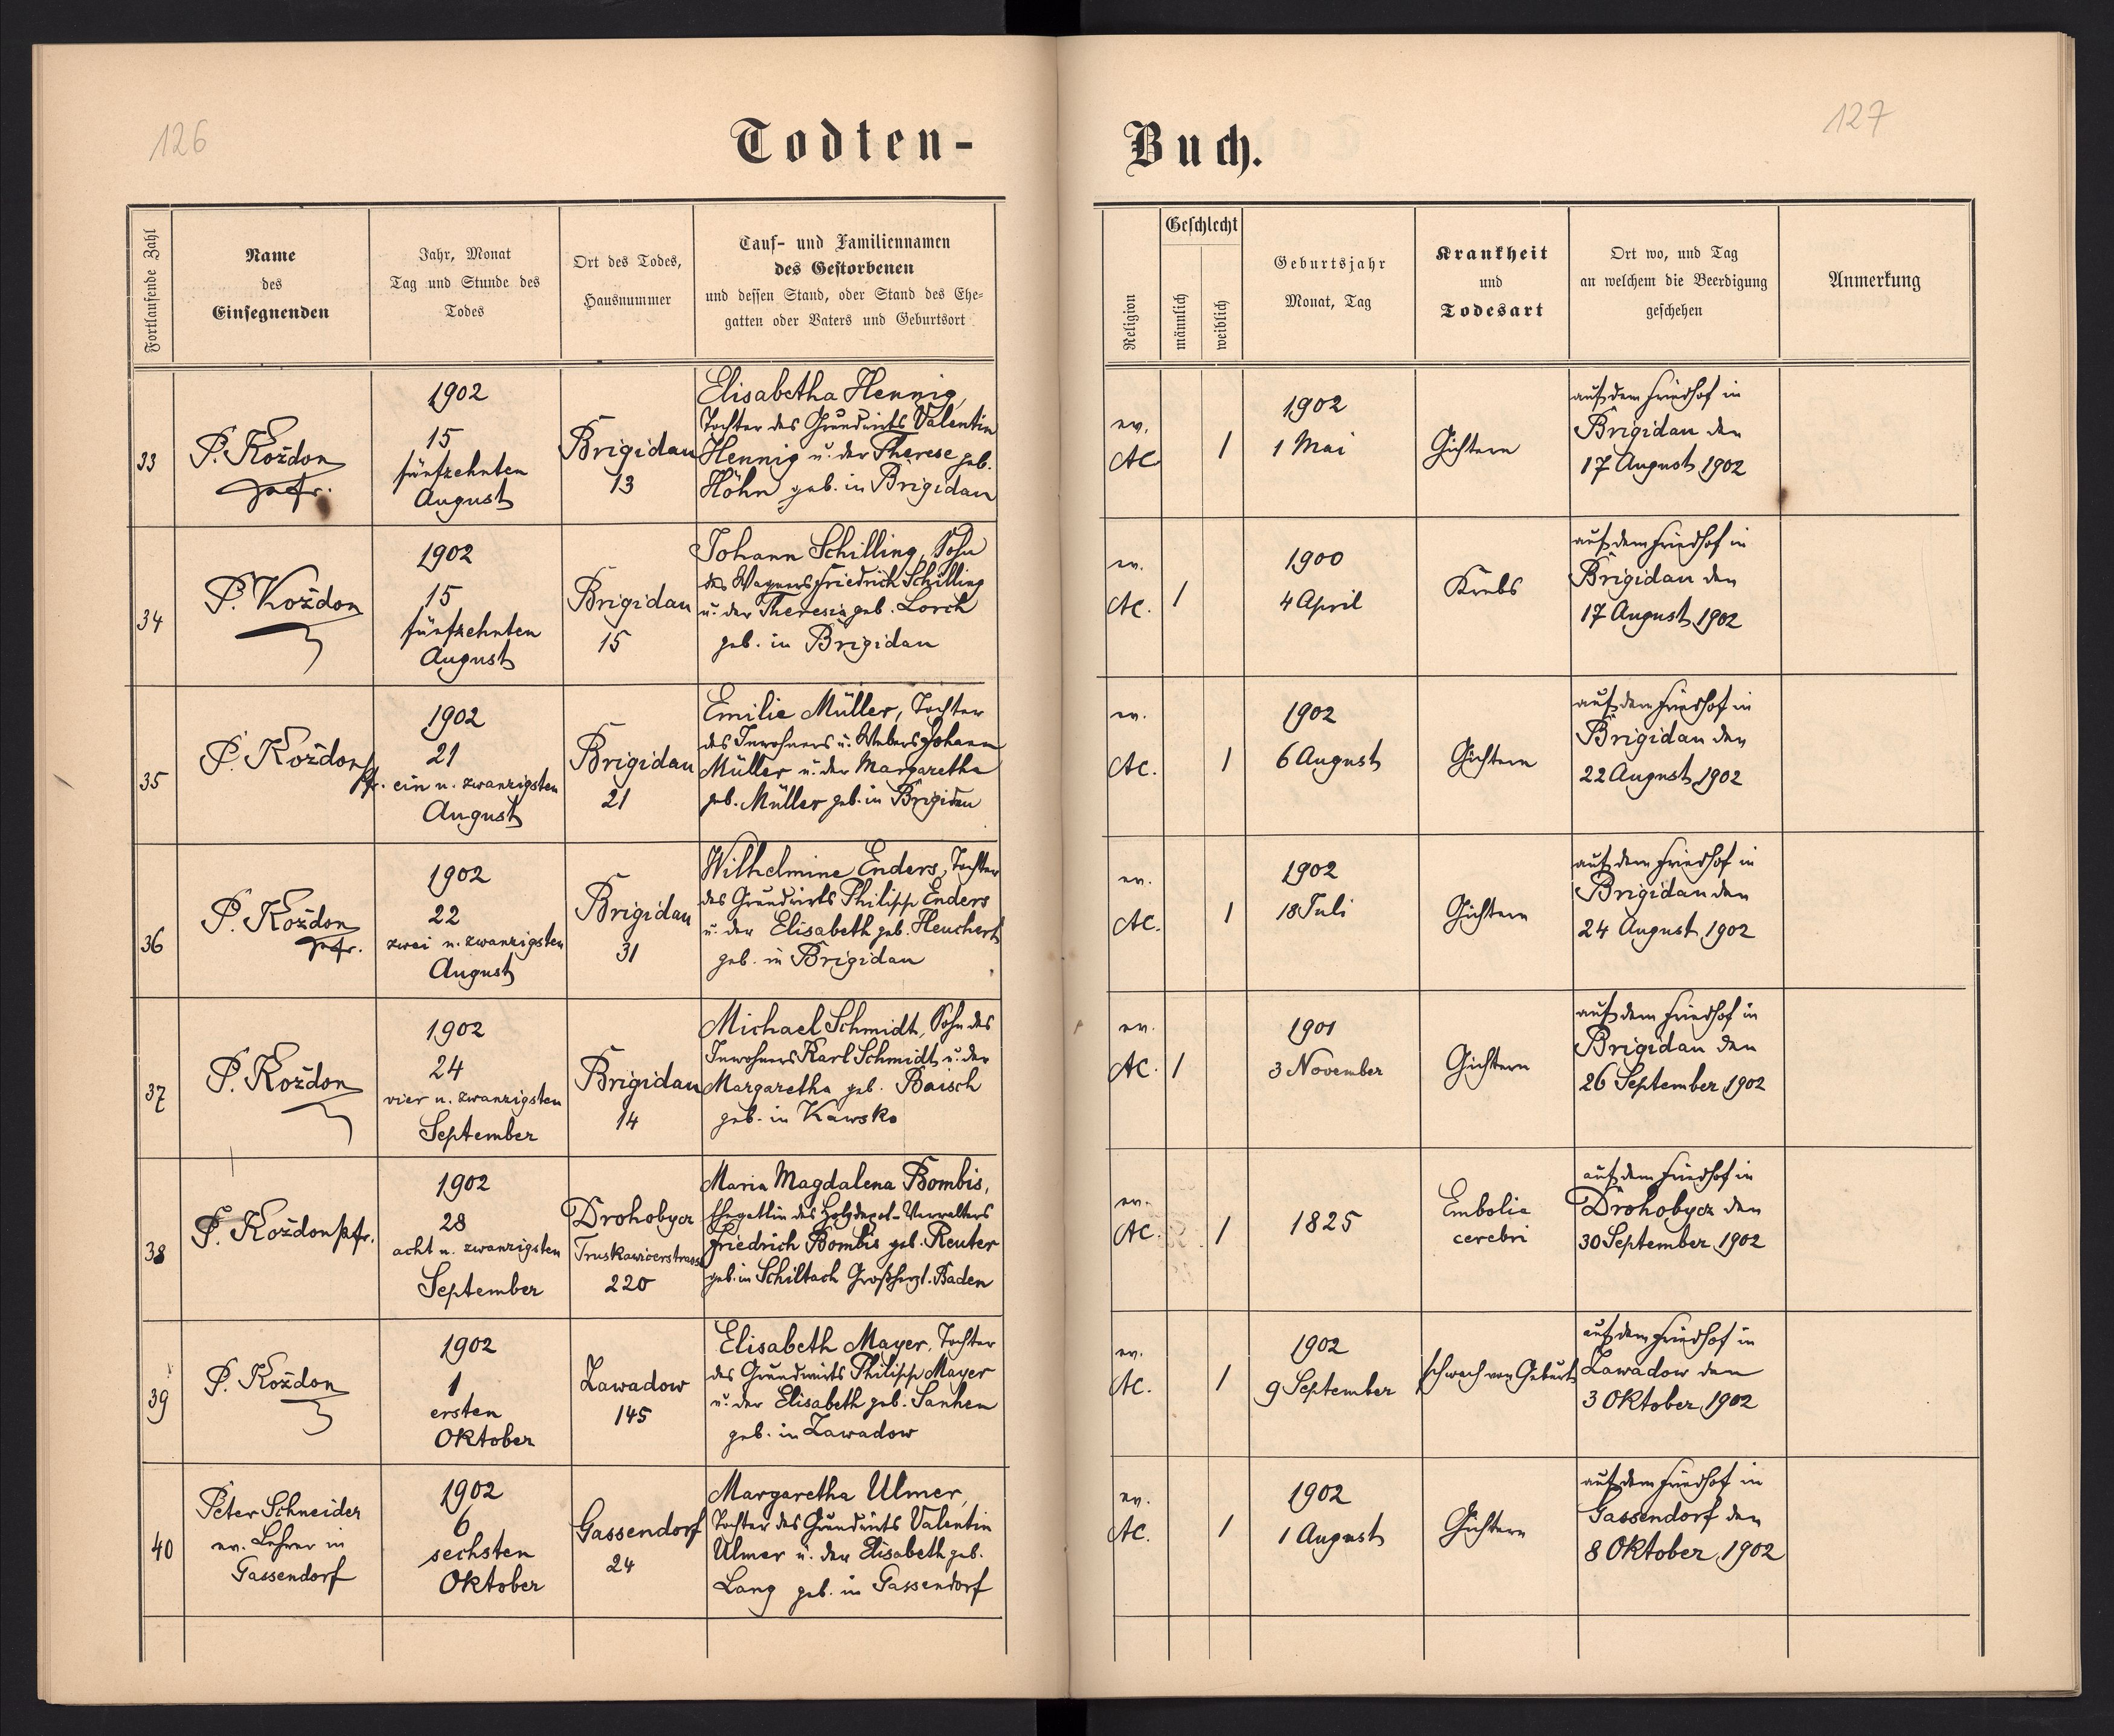 126
Todten-
Fortlaufende Zahl
Name
des
Einsegnenden
Jahr, Monat
Tag und Stunde des
Todes
Ort des Todes,
Hausnummer
Tauf- und Familiennamen
des Gestorbenen
und dessen Stand, oder Stand des Ehe-
gatten oder Vaters und Geburtsort
33
P. Kożdon
pfr.
1902
15
fünfzehnten
August
Brigidau
13
Elisabetha Hennig,
Tochter des Grundwirts Valentin
Hennig u. der Therese geb.
Höhn geb. in Brigidau
34
P. Kożdon
1902
15
fünfzehnten
August
Brigidau
15
Johann Schilling, Sohn
des Wagners Friedrich Schilling
u. der Theresia geb. Lorch
geb. in Brigidau
35
P. Kożdon
Pfr.
1902
21
ein u. zwanzigsten
August
Brigidau
21
Emilie Müller, Tochter
des Inwohners u. Webers Johann
Müller u. der Margaretha
geb. Müller geb. in Brigidau
36
P. Kożdon
pfr.
1902
22
zwei u. zwanzigsten
August
Brigidau
31
Wilhelmine Enders, Tochter
des Grundwirts Philipp Enders
u. der Elisabeth geb. Heuchert
geb. in Brigidau
37
P. Kożdon
1902
24
vier u. zwanzigsten
September
Brigidau
14
Michael Schmidt, Sohn des
Inwohners Karl Schmidt u. der
Margaretha geb. Baisch
geb. in Kawsko
38
P. Kożdon pfr.
1902
28
acht u. zwanzigsten
September
Drohobycz
Truskawicerstrasse
220
Maria Magdalena Bombis,
Ehegattin des Holzdepot-Verwalters
Friedrich Bombis geb. Reuter
geb. in Schiltach Großherzl. Baden
39
P. Kożdon
1902
1
ersten
Oktober
Zawadow
145
Elisabeth Mayer, Tochter
des Grundwirts Philipp Mayer
u. der Elisabeth geb. Sanhen
geb. in Zawadow
40
Peter Schneider
ev. Lehrer in
Gassendorf
1902
6
sechsten
Oktober
Gassendorf
24
Margaretha Ulmer,
Tochter des Grundwirts Valentin
Ulmer u. der Elisabeth geb.
Lang geb. in Gassendorf
127
Buch.
Religion
Geschlecht
männlich
weiblich
Geburtsjahr
Monat, Tag
Krankheit
und
Todesart
Ort wo, und Tag
an welchem die Beerdigung
geschehen
Anmerkung
ev.
AC
1
1902
1 Mai
Gichtern
auf dem Friedhof in
Brigidau den
17 August 1902
ev.
AC.
1
1900
4 April
Krebs
auf dem Friedhof in
Brigidau den
17 August 1902
ev.
AC.
1
1902
6 August
Gichtern
auf dem Friedhof in
Brigidau den
22 August 1902
ev.
AC.
1
1902
18 Juli
Gichtern
auf dem Friedhof in
Brigidau den
24 August 1902
ev.
AC.
1
1901
3 November
Gichtern
auf dem Friedhof in
Brigidau den
26 September 1902
ev.
AC.
1
1825
Embolia
cerebri
auf dem Friedhof in
Drohobycz den
30 September 1902
ev.
AC.
1
1902
9 September
schwach von Geburt
auf dem Friedhof in
Zawadow den
3 Oktober 1902
ev.
AC.
1
1902
1 August
Gichtern
auf dem Friedhof in
Gassendorf den
8 Oktober 1902